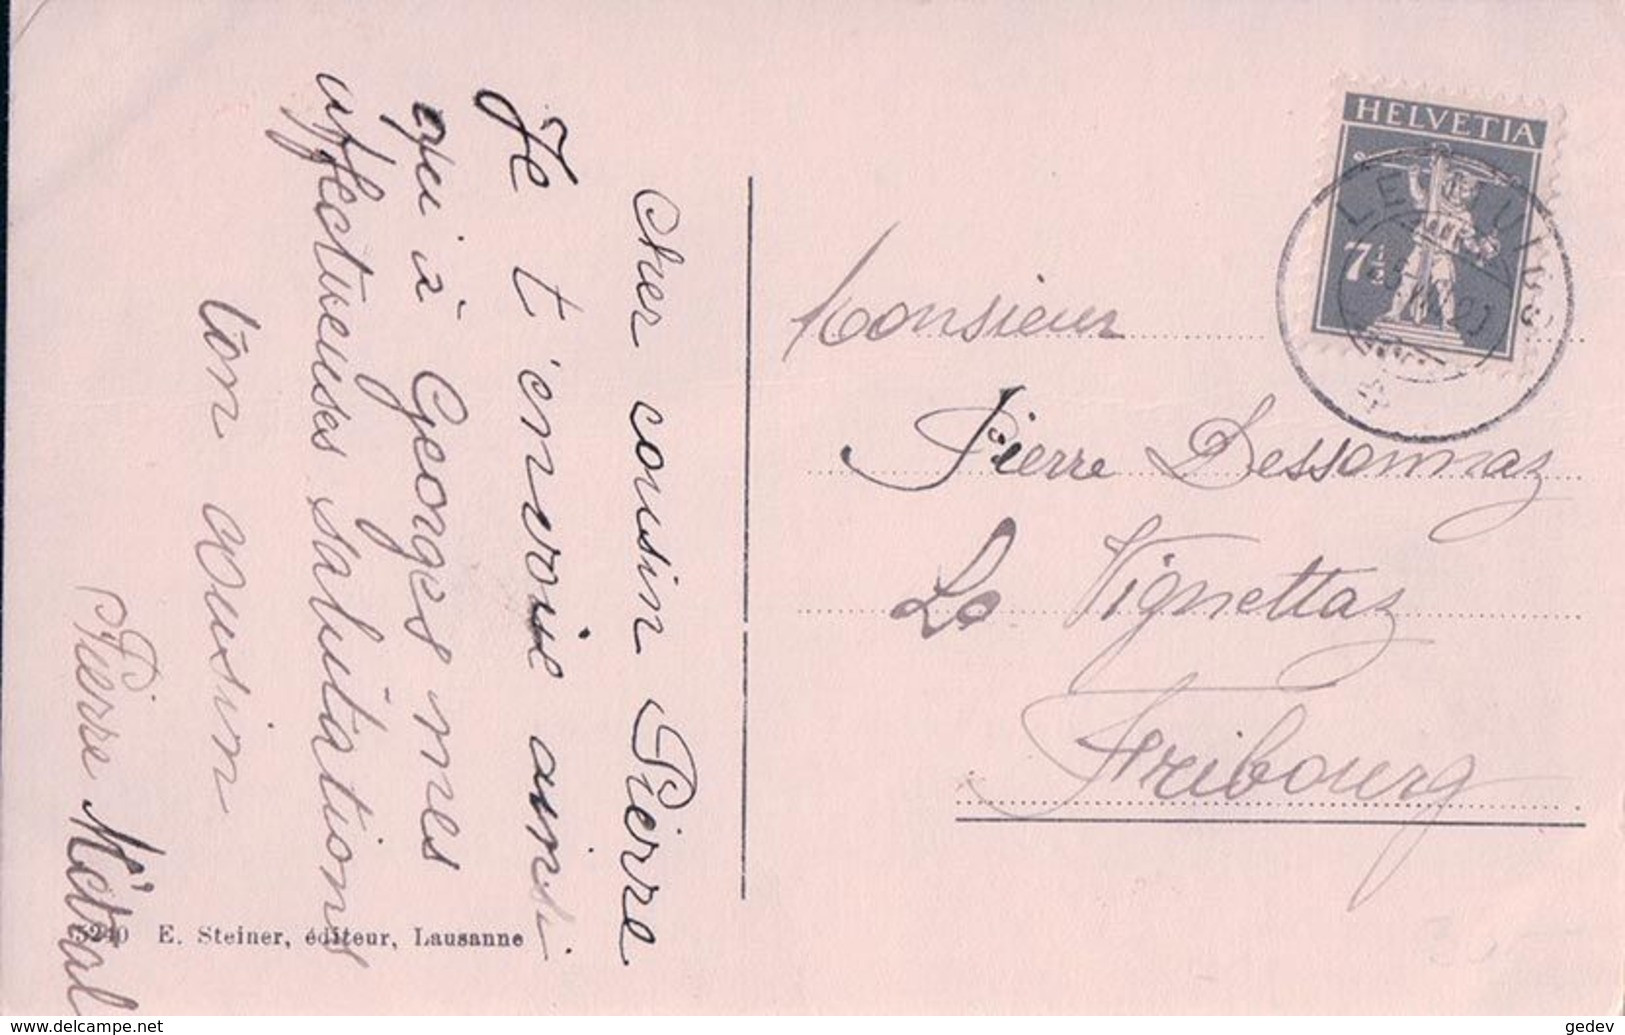 Cher cousin Pierre
Je t'envoie ainsi
qu'à Georges mes
affectueuses salutations
Ton cousin
Pierre Métral
5240 E. Steiner, éditeur, Lausanne
HELVETIA
7½
Monsieur
Pierre Dessonnaz
La Vignettaz
Fribourg
www.delcampe.net
gedev